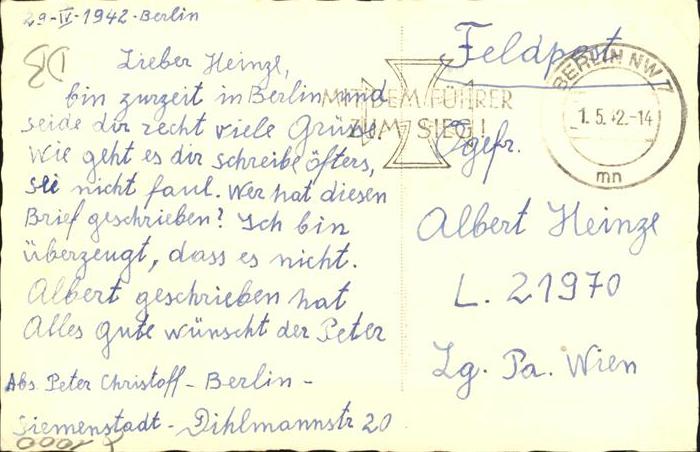 29-IV-1942-Berlin
Lieber Heinze,
bin zurzeit in Berlin und
seide dir recht viele Grüsse.
Wie geht es dir schreibe öfters,
sei nicht faul. Wer hat diesen
Brief geschrieben? Ich bin
überzeugt, dass es nicht.
Albert geschrieben hat
Alles Gute wünscht der Peter
Abs. Peter Christoff - Berlin -
Siemenstadt - Dihlmannstr 20
Feldpost
MIT DEM FÜHRER
ZUM SIEG!
BERLIN NW 7
1.5.42.-14
mn
Ogefr.
Albert Heinze
L. 21970
Lg. Pa. Wien